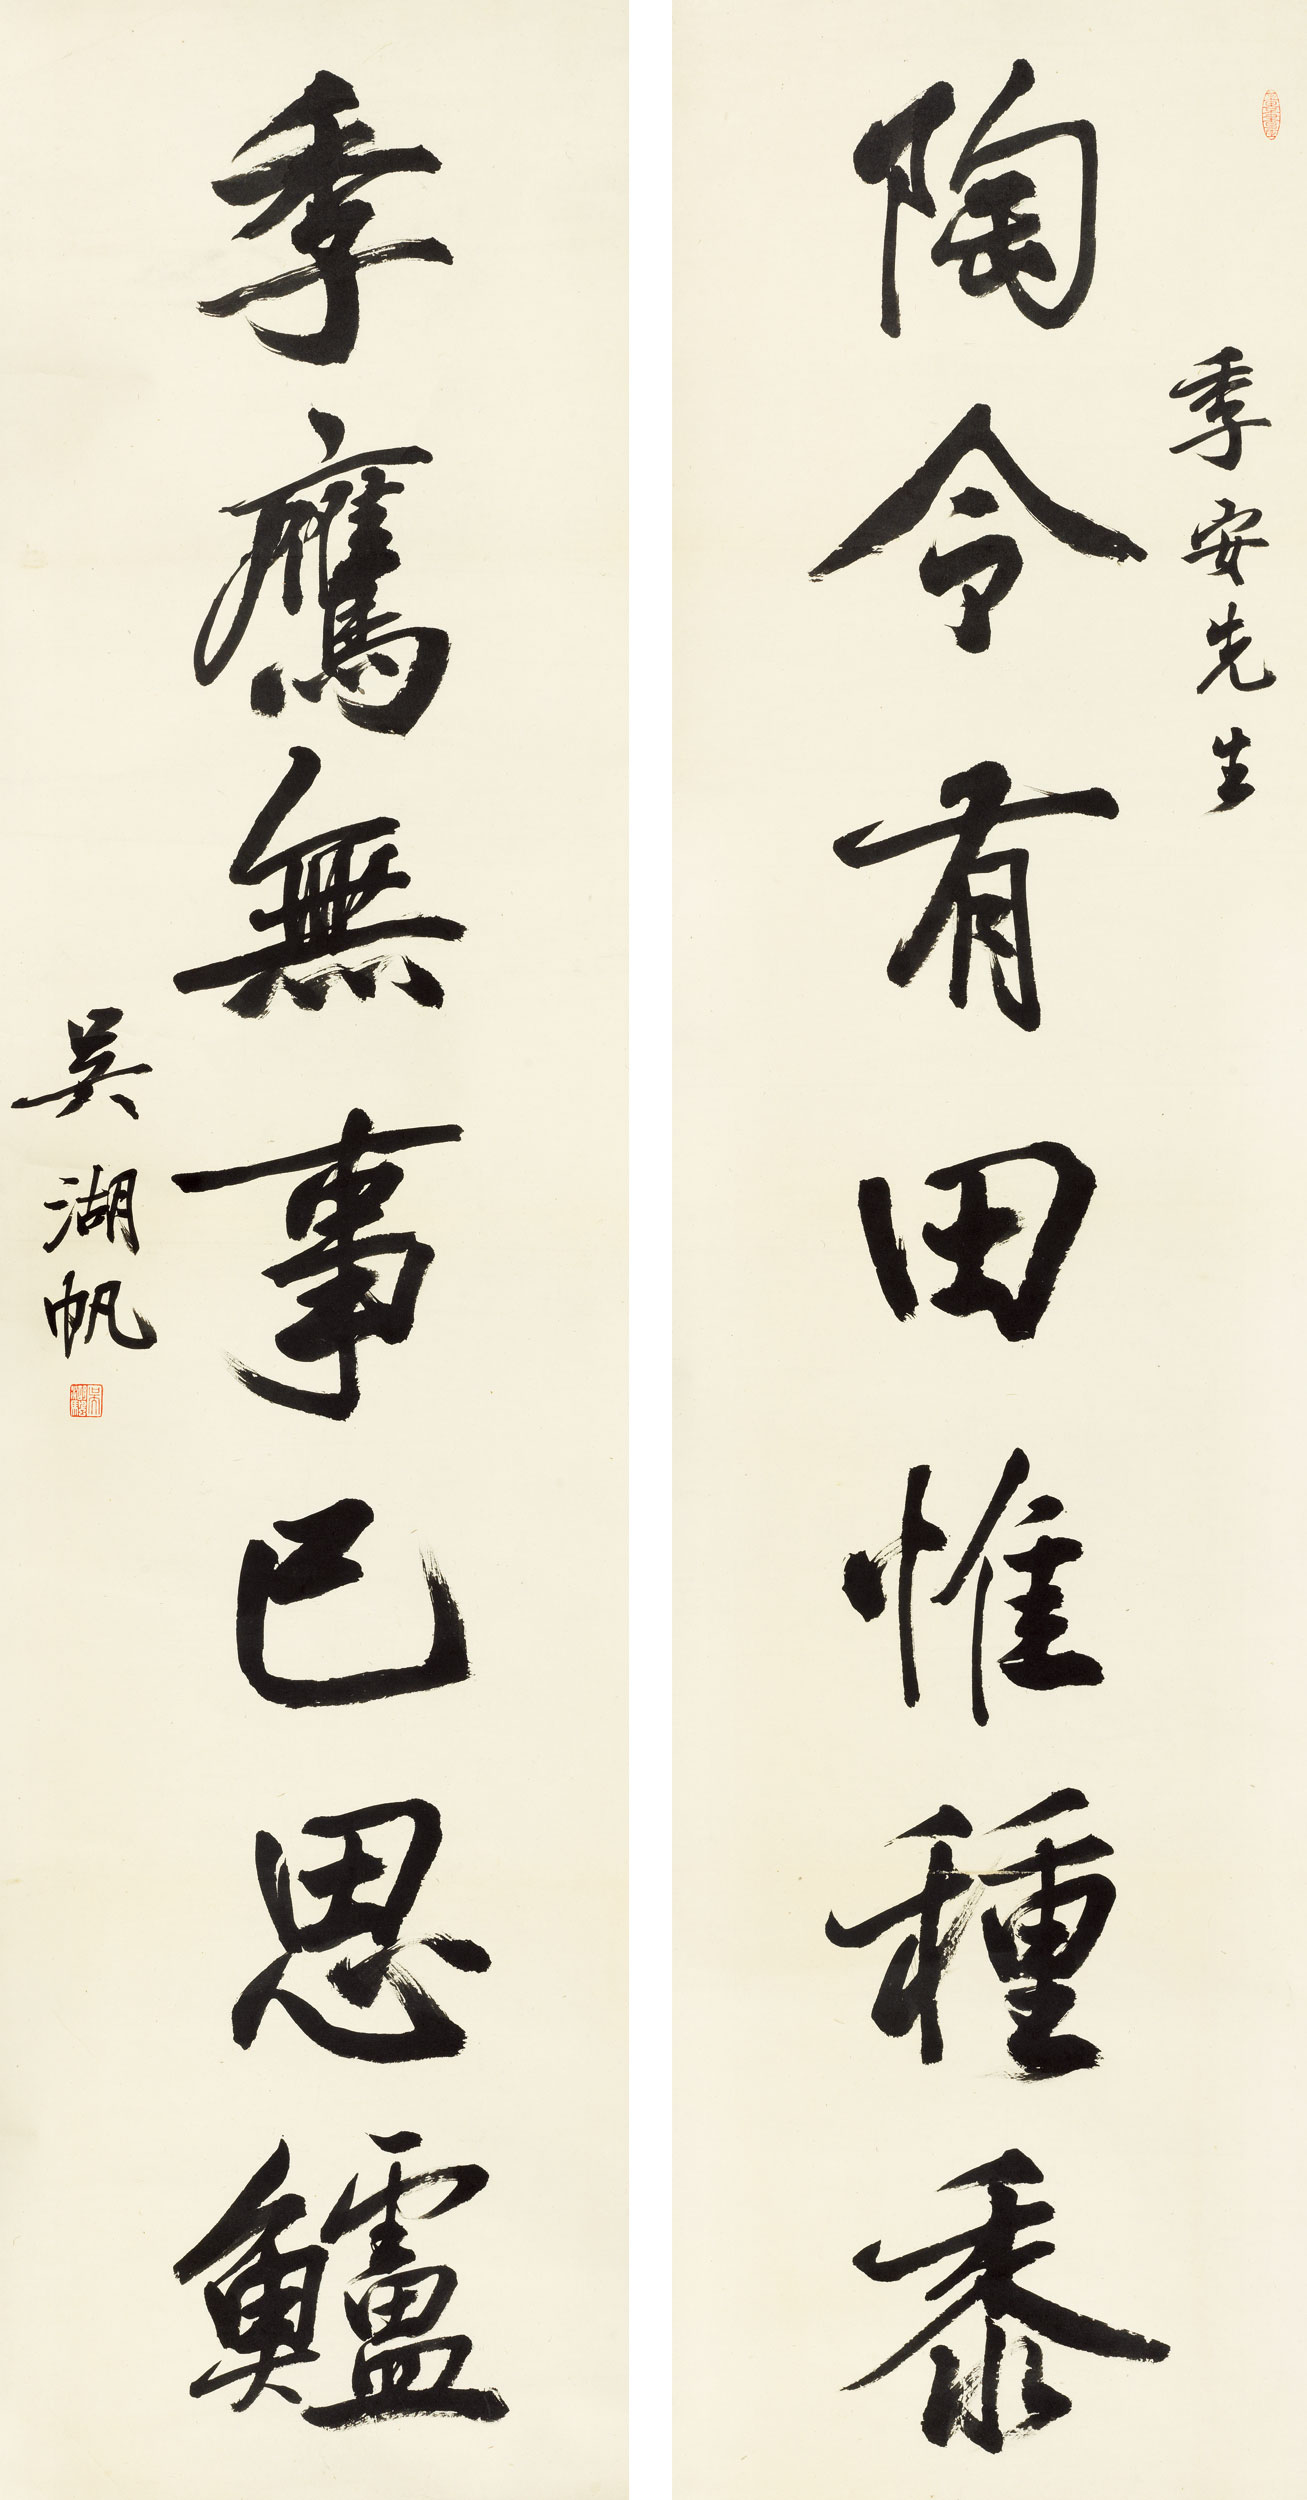 季安先生
陶令有田惟種黍
季鷹無事已思鱸
吳湖帆